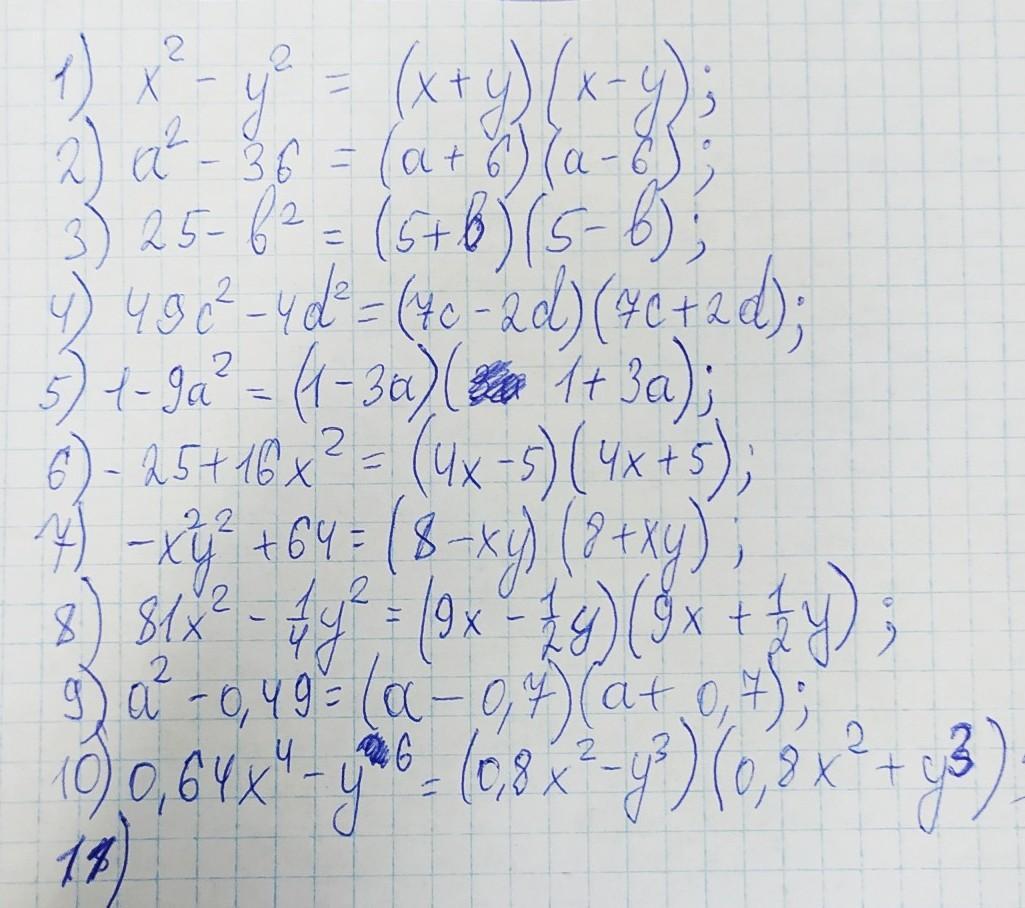 1) x² - y² = (x+y)(x-y);
2) a² - 36 = (a+6)(a-6);
3) 25 - b² = (5+b)(5-b);
4) 49c² - 4d² = (7c-2d)(7c+2d);
5) 1-9a² = (1-3a)(1+3a);
6) -25+16x² = (4x-5)(4x+5);
7) -x²y² +64 = (8-xy)(8+xy);
8) 81x² - 1/4y² = (9x - 1/2y)(9x + 1/2y);
9) a² - 0,49 = (a - 0,7)(a + 0,7);
10) 0,64x⁴ - y⁶ = (0,8x² - y³)(0,8x² + y³);
11)